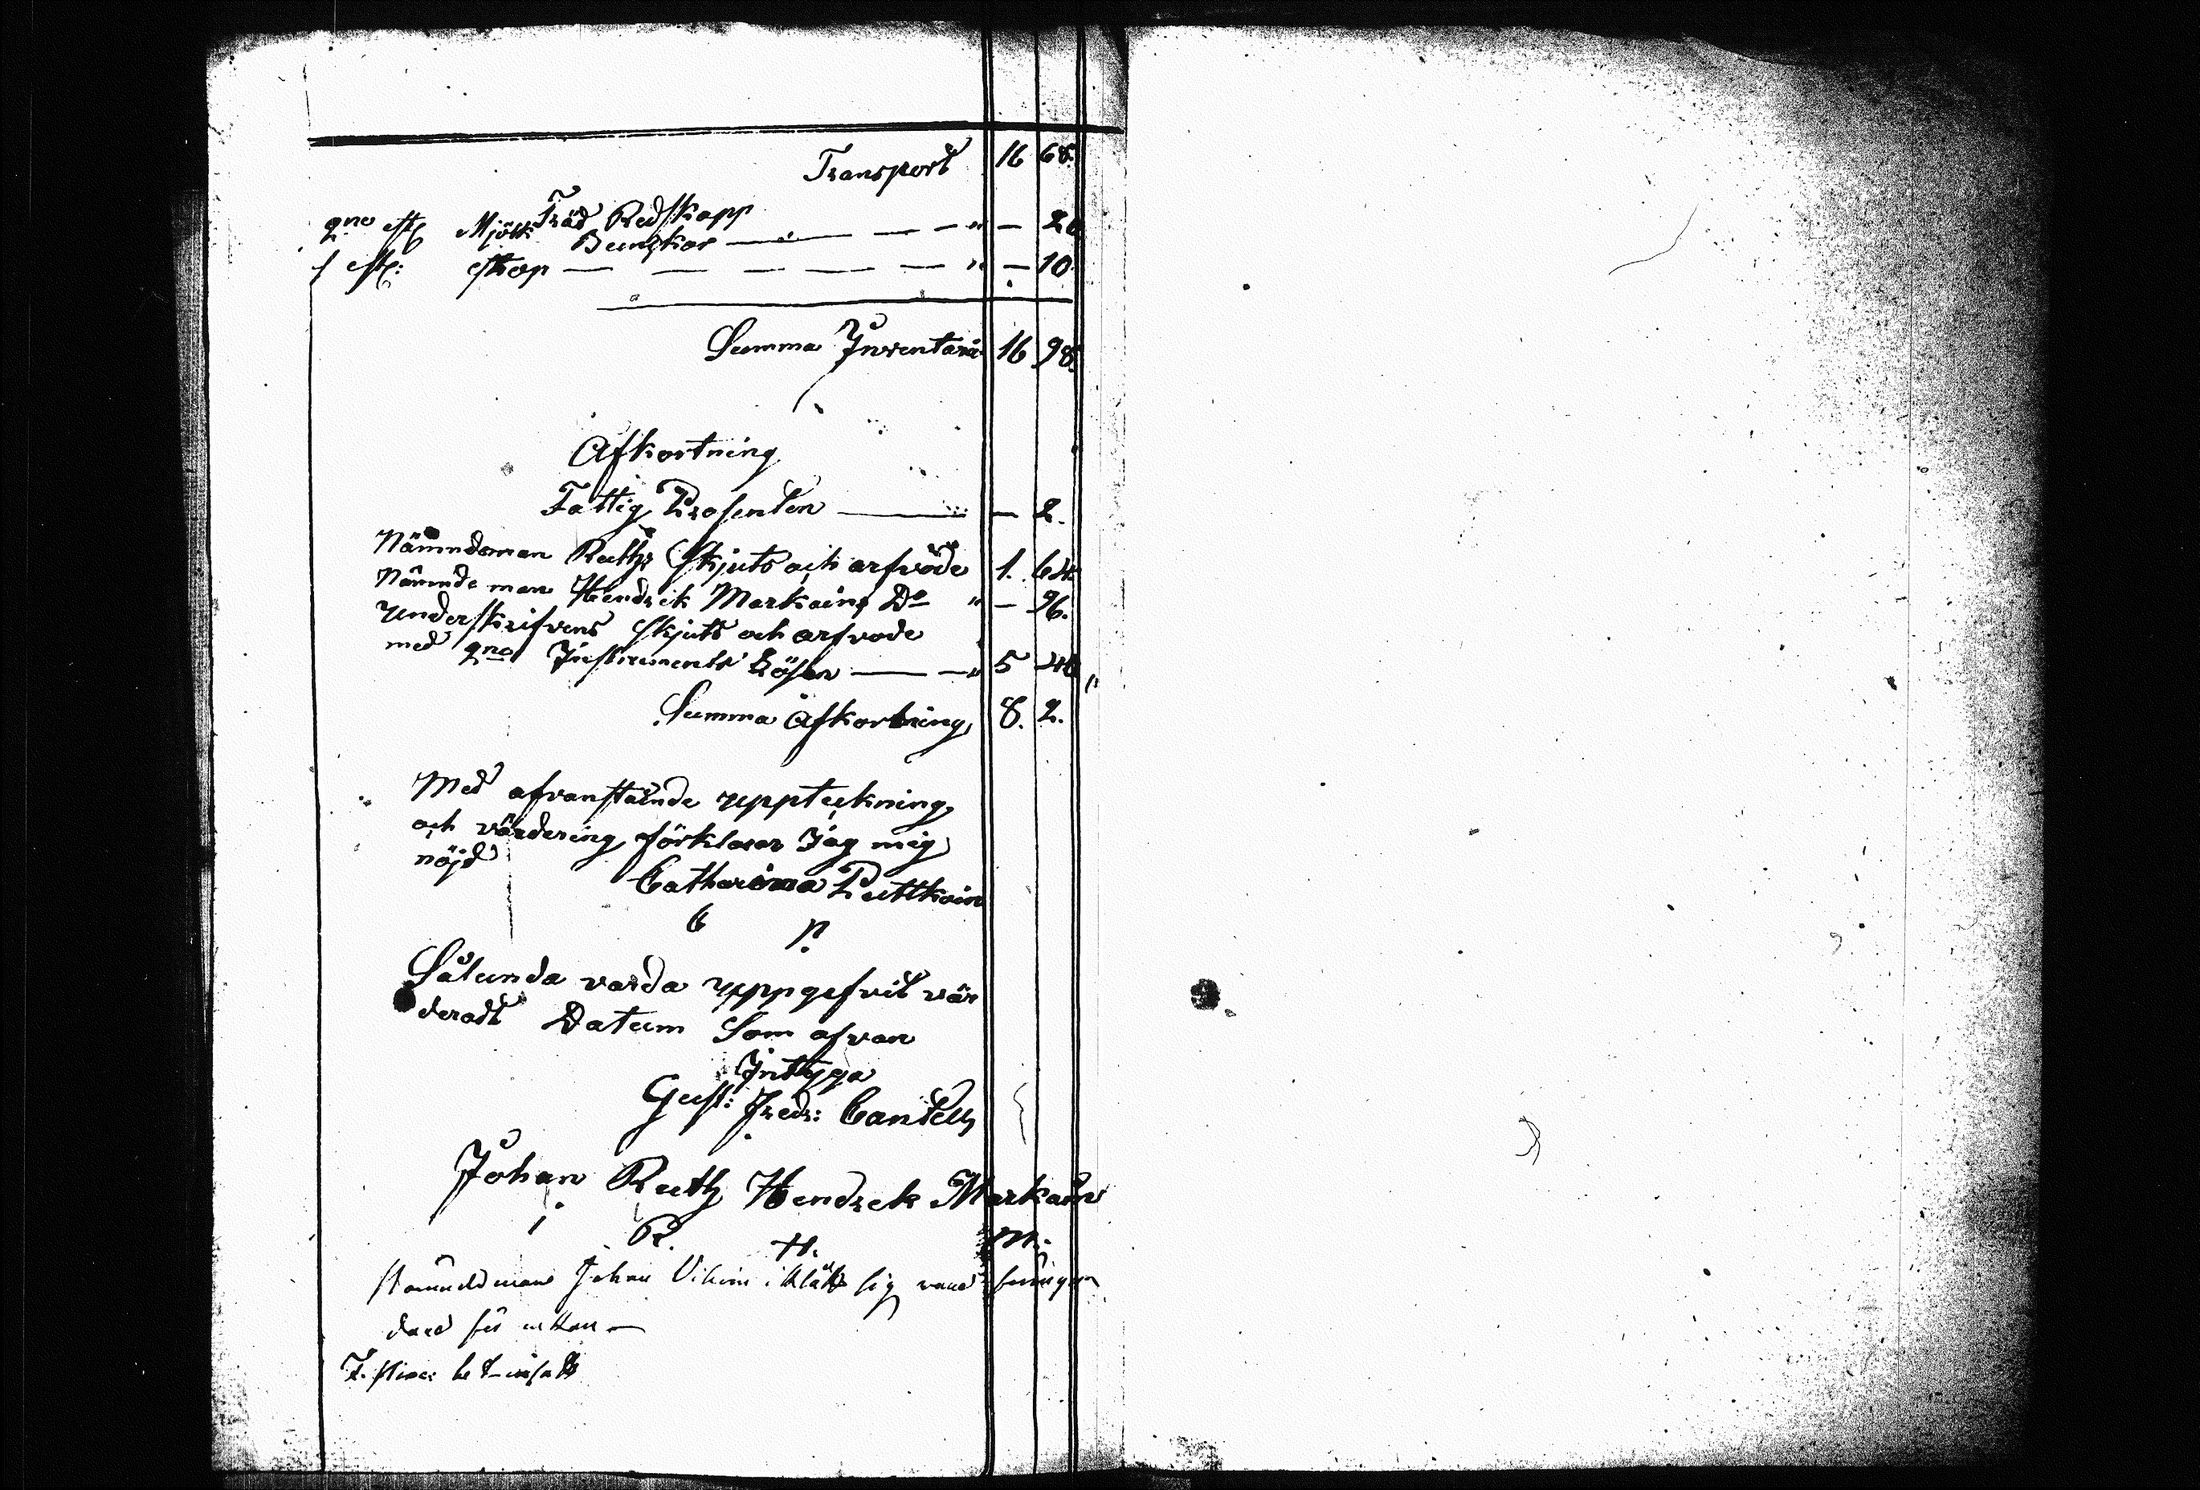 Transport 16 68.
Träd Redskapp
2ne st: Mjölk Bunkar — — — " — 20
1 st: stop — — — — — " — 10
Summa Inventari 16 98.
Afkortning
Fattig Prosenten — — 2.
Nämndeman Ruth Skjuts och arfvode 1. 64
Nämnde man Hendrik Markain Do " — 96.
Underskrifvens skjuts och arfvode
med 2ne Instruments Lösen — — " 5 40
Summa Afkortning 8. 2.
Med afvanstående uppteckning
och värdering förklarar Jag mig
nöjd
Catharina Puttkoin
C P.
Sålunda varda uppgefvit vär
deradt Datum Som afvan
Intyga
Gust: Fredr: Cantell
Johan Ruth Hendrek Markain
I R. H. M.
Johan sig